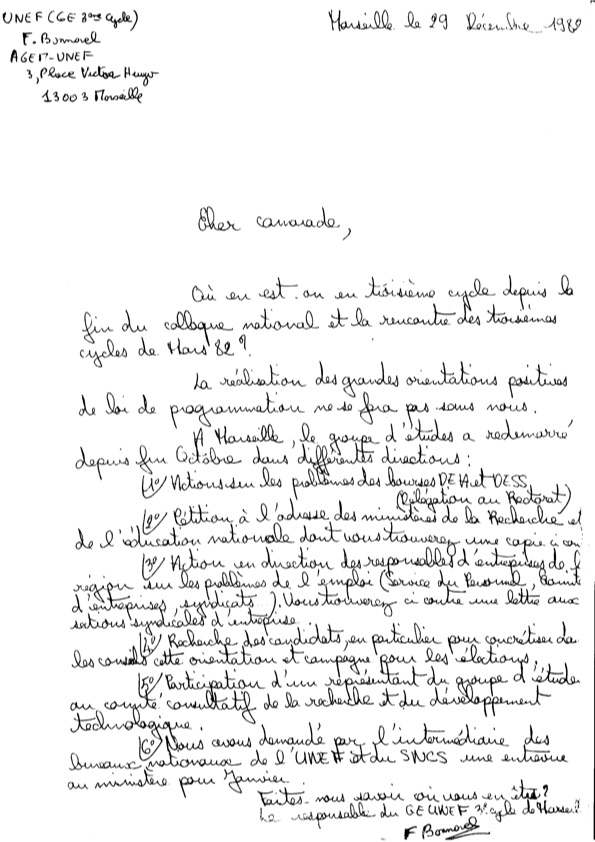 UNEF (GE 3ème Cycle)
F. Bonnorel
AGEM-UNEF
3, Place Victor Hugo
13003 Marseille
Marseille le 29 Décembre 1982
Cher camarade,
Où en est-on en troisième cycle depuis la
fin du colloque national et la rencontre des troisièmes
cycles de Mars 82 ?
La réalisation des grandes orientations positives
de loi de programmation ne se fera pas sans nous.
A Marseille, le groupe d'études a redemarré
depuis fin Octobre dans différentes directions :
(1°/ Actions sur les problèmes des bourses DEA et DESS
(Délégation au Rectorat)
(2°/ Pétition à l'adresse des ministères de la Recherche et
de l'éducation nationale dont vous trouverez une copie ci
(3°/ Action en direction des responsables d'entreprises de
région sur les problèmes de l'emploi (Service du Personnel, Comité
d'entreprises, syndicats). Vous trouverez ci contre une lettre aux
sections syndicales d'entreprise
(4°/ Recherche des candidats, en particulier pour concrétiser da
les conseils cette orientation et campagne pour les élections,
(5°/ Participation d'un représentant du groupe d'études
au comité consultatif de la recherche et du développement
technologique.
(6°/ Nous avons demandé par l'intermédiaire des
bureaux nationaux de l'UNEF et du SNCS une entrevue
au ministère pour Janvier.
Faites-nous savoir où vous en êtes ?
Le responsable du GE UNEF 3e cycle de Marseille
F Bonnorel